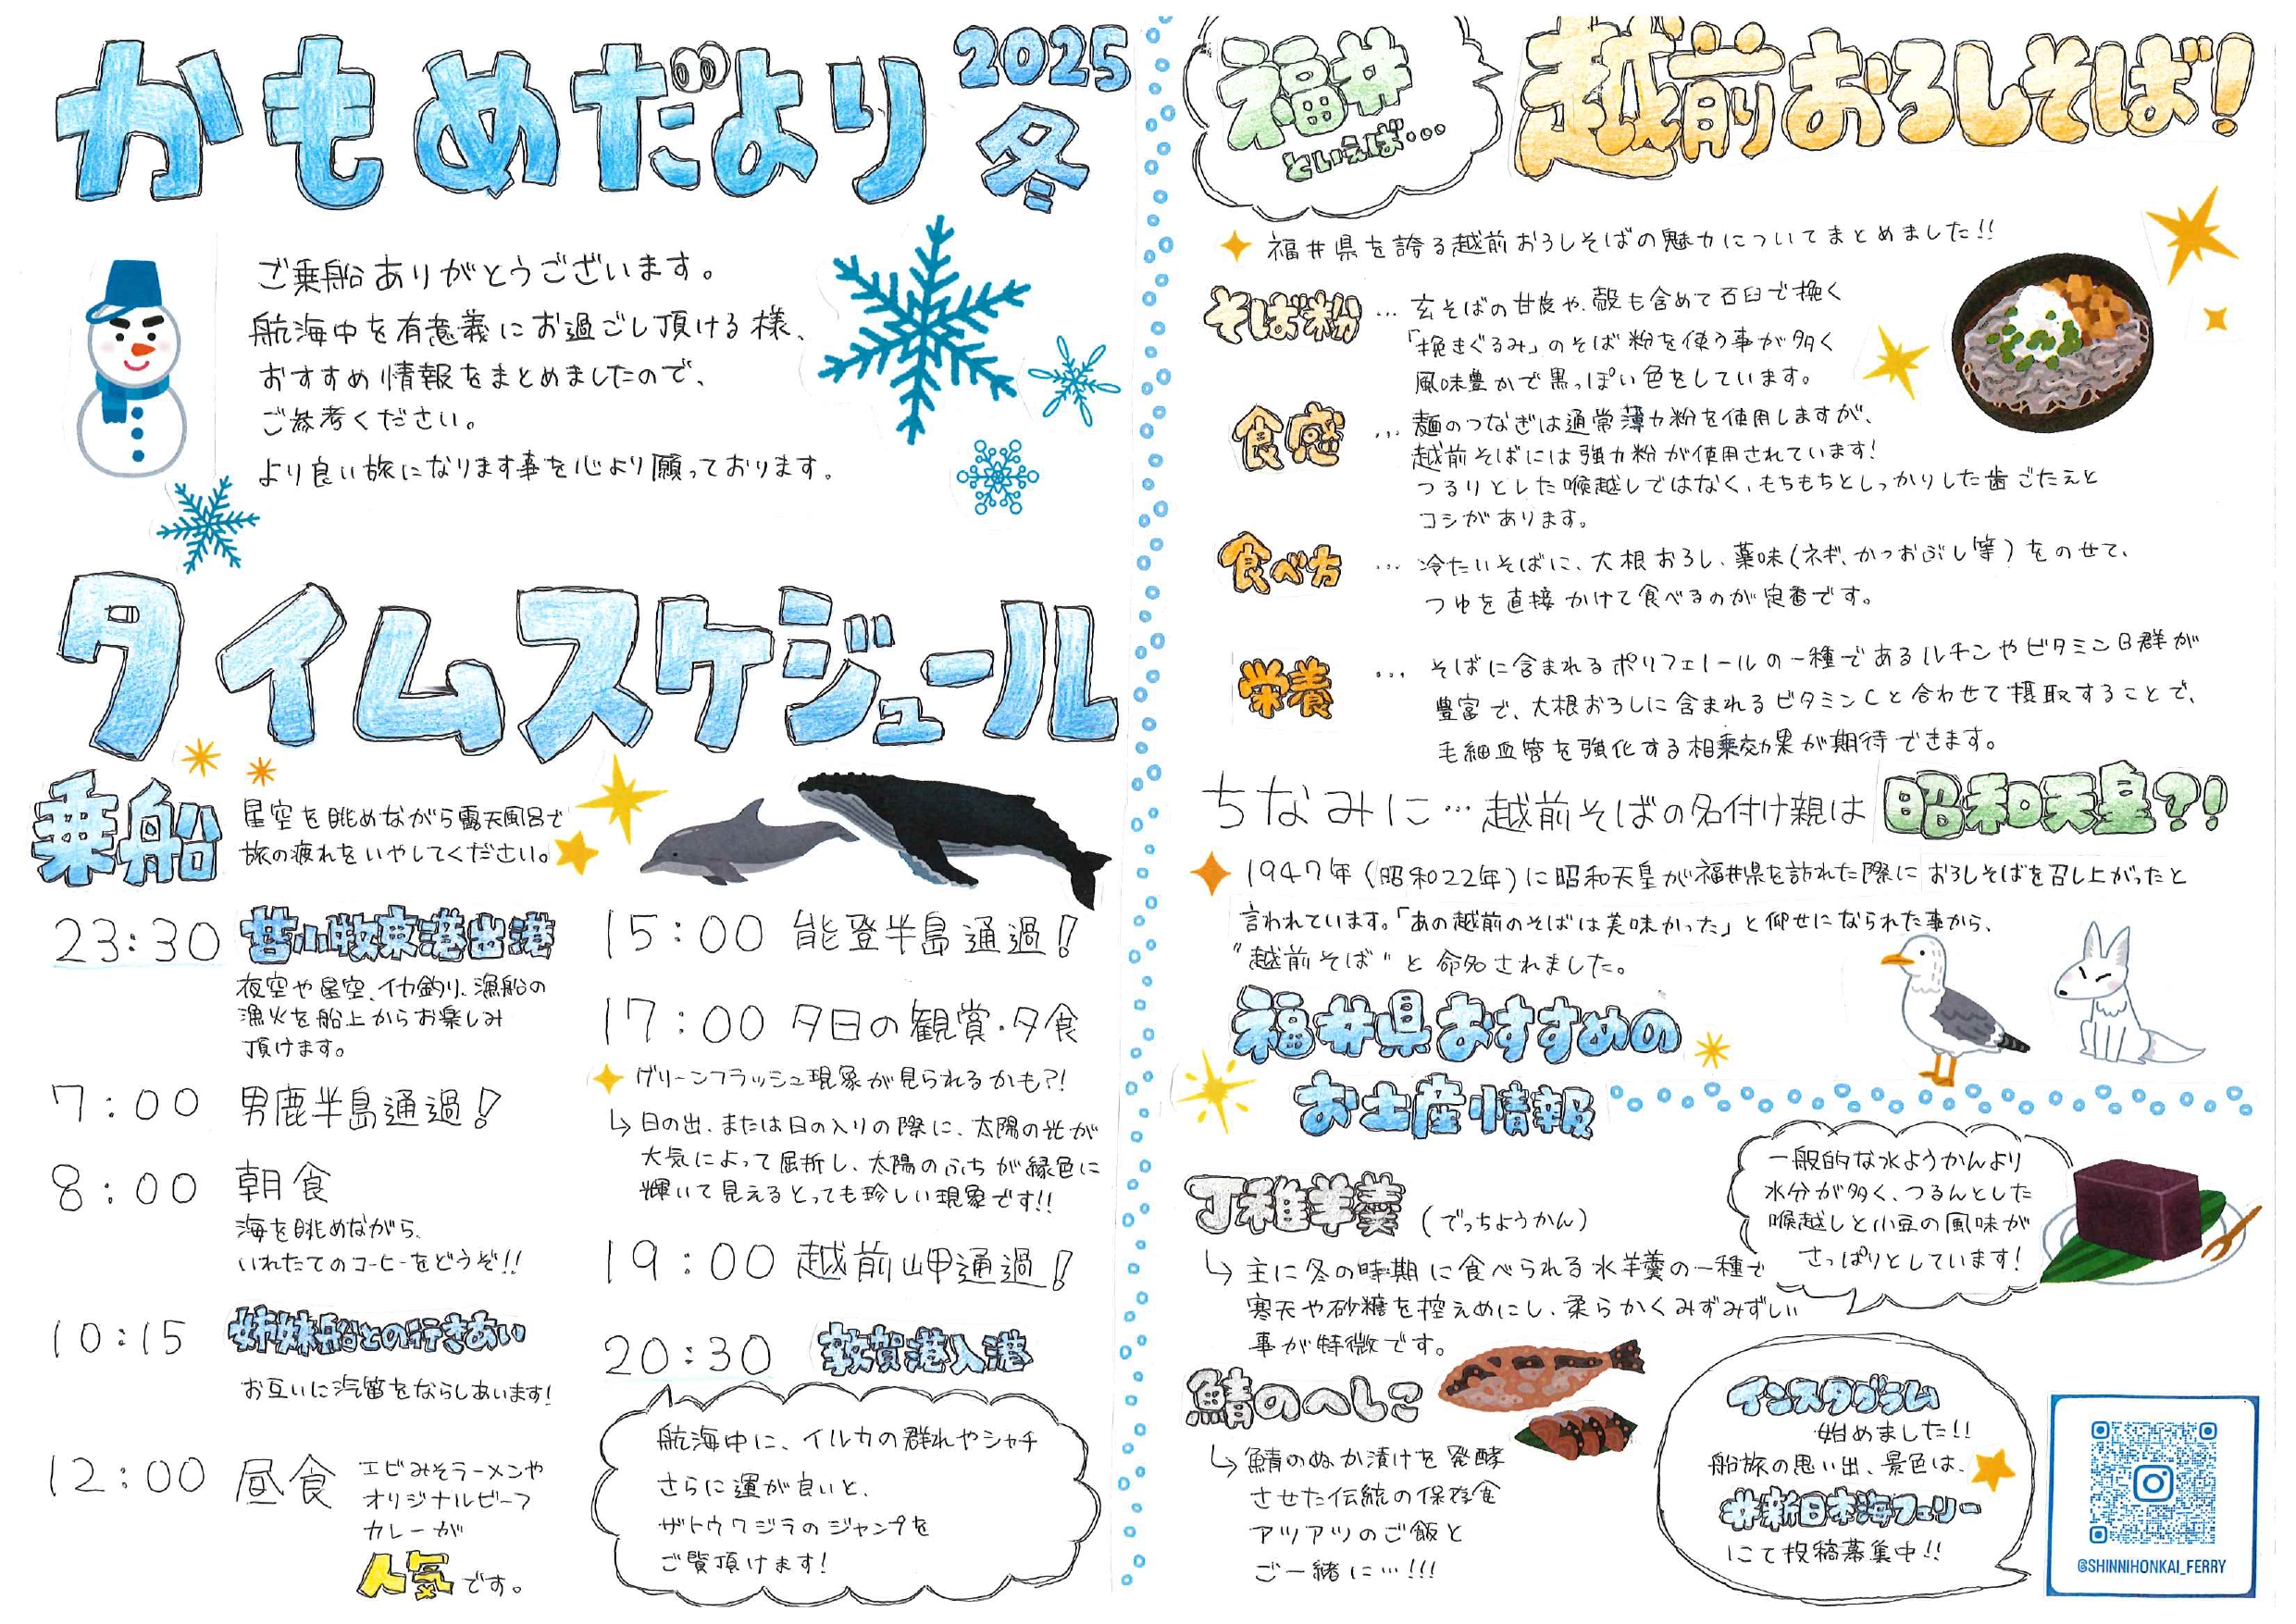 かもめだより 2025 冬
ご乗船ありがとうございます。
航海中を有意義にお過ごし頂ける様、
おすすめ情報をまとめましたので、
ご参考ください。
より良い旅になります事を心より願っております。
タイムスケジュール
乗船
星空を眺めながら露天風呂で
旅の疲れをいやしてください。
23:30 苫小牧東港出港
夜空や星空、イカ釣り、漁船の
漁火を船上からお楽しみ
頂けます。
7:00 男鹿半島通過!
8:00 朝食
海を眺めながら、
いれたてのコーヒーをどうぞ!!
10:15 姉妹船との行きあい
お互いに汽笛をならしあいます!
12:00 昼食 エビみそラーメンや
オリジナルビーフ
カレーが
人気です。
15:00 能登半島通過!
17:00 夕日の観賞・夕食
グリーンフラッシュ現象が見られるかも?!
↳日の出、または日の入りの際に、太陽の光が
大気によって屈折し、太陽のふちが緑色に
輝いて見えるとっても珍しい現象です!!
19:00 越前岬通過!
20:30 敦賀港入港
航海中に、イルカの群れやシャチ
さらに運が良いと、
ザトウクジラのジャンプを
ご覧頂けます!
福井といえば…
越前おろしそば!
福井県を誇る越前おろしそばの魅力についてまとめました!!
そば粉 … 玄そばの甘皮や、殻も含めて石臼で挽く
「挽きぐるみ」のそば粉を使う事が多く
風味豊かで黒っぽい色をしています。
食感 … 麺のつなぎは通常薄力粉を使用しますが、
越前そばには強力粉が使用されています!
つるりとした喉越しではなく、もちもちとしっかりした歯ごたえと
コシがあります。
食べ方 … 冷たいそばに、大根おろし、薬味(ネギ、かつおぶし等)をのせて、
つゆを直接かけて食べるのが定番です。
栄養 … そばに含まれるポリフェノールの一種であるルチンやビタミンB群が
豊富で、大根おろしに含まれるビタミンCと合わせて摂取することで、
毛細血管を強化する相乗効果が期待できます。
ちなみに…越前そばの名付け親は昭和天皇?!
1947年(昭和22年)に昭和天皇が福井県を訪れた際におろしそばを召し上がったと
言われています。「あの越前のそばは美味かった」と仰せになられた事から、
"越前そば"と命名されました。
福井県おすすめの
お土産情報
丁稚羊羹(でっちようかん)
↳主に冬の時期に食べられる水羊羹の一種で
寒天や砂糖を控えめにし、柔らかくみずみずしい
事が特徴です。
一般的な水ようかんより
水分が多く、つるんとした
喉越しと小豆の風味が
さっぱりとしています!
鯖のへしこ
↳鯖のぬか漬けを発酵
させた伝統の保存食
アツアツのご飯と
ご一緒に…!!!
インスタグラム
始めました!!
船旅の思い出、景色は、
#新日本海フェリー
にて投稿募集中!!
@SHINNIHONKAI_FERRY